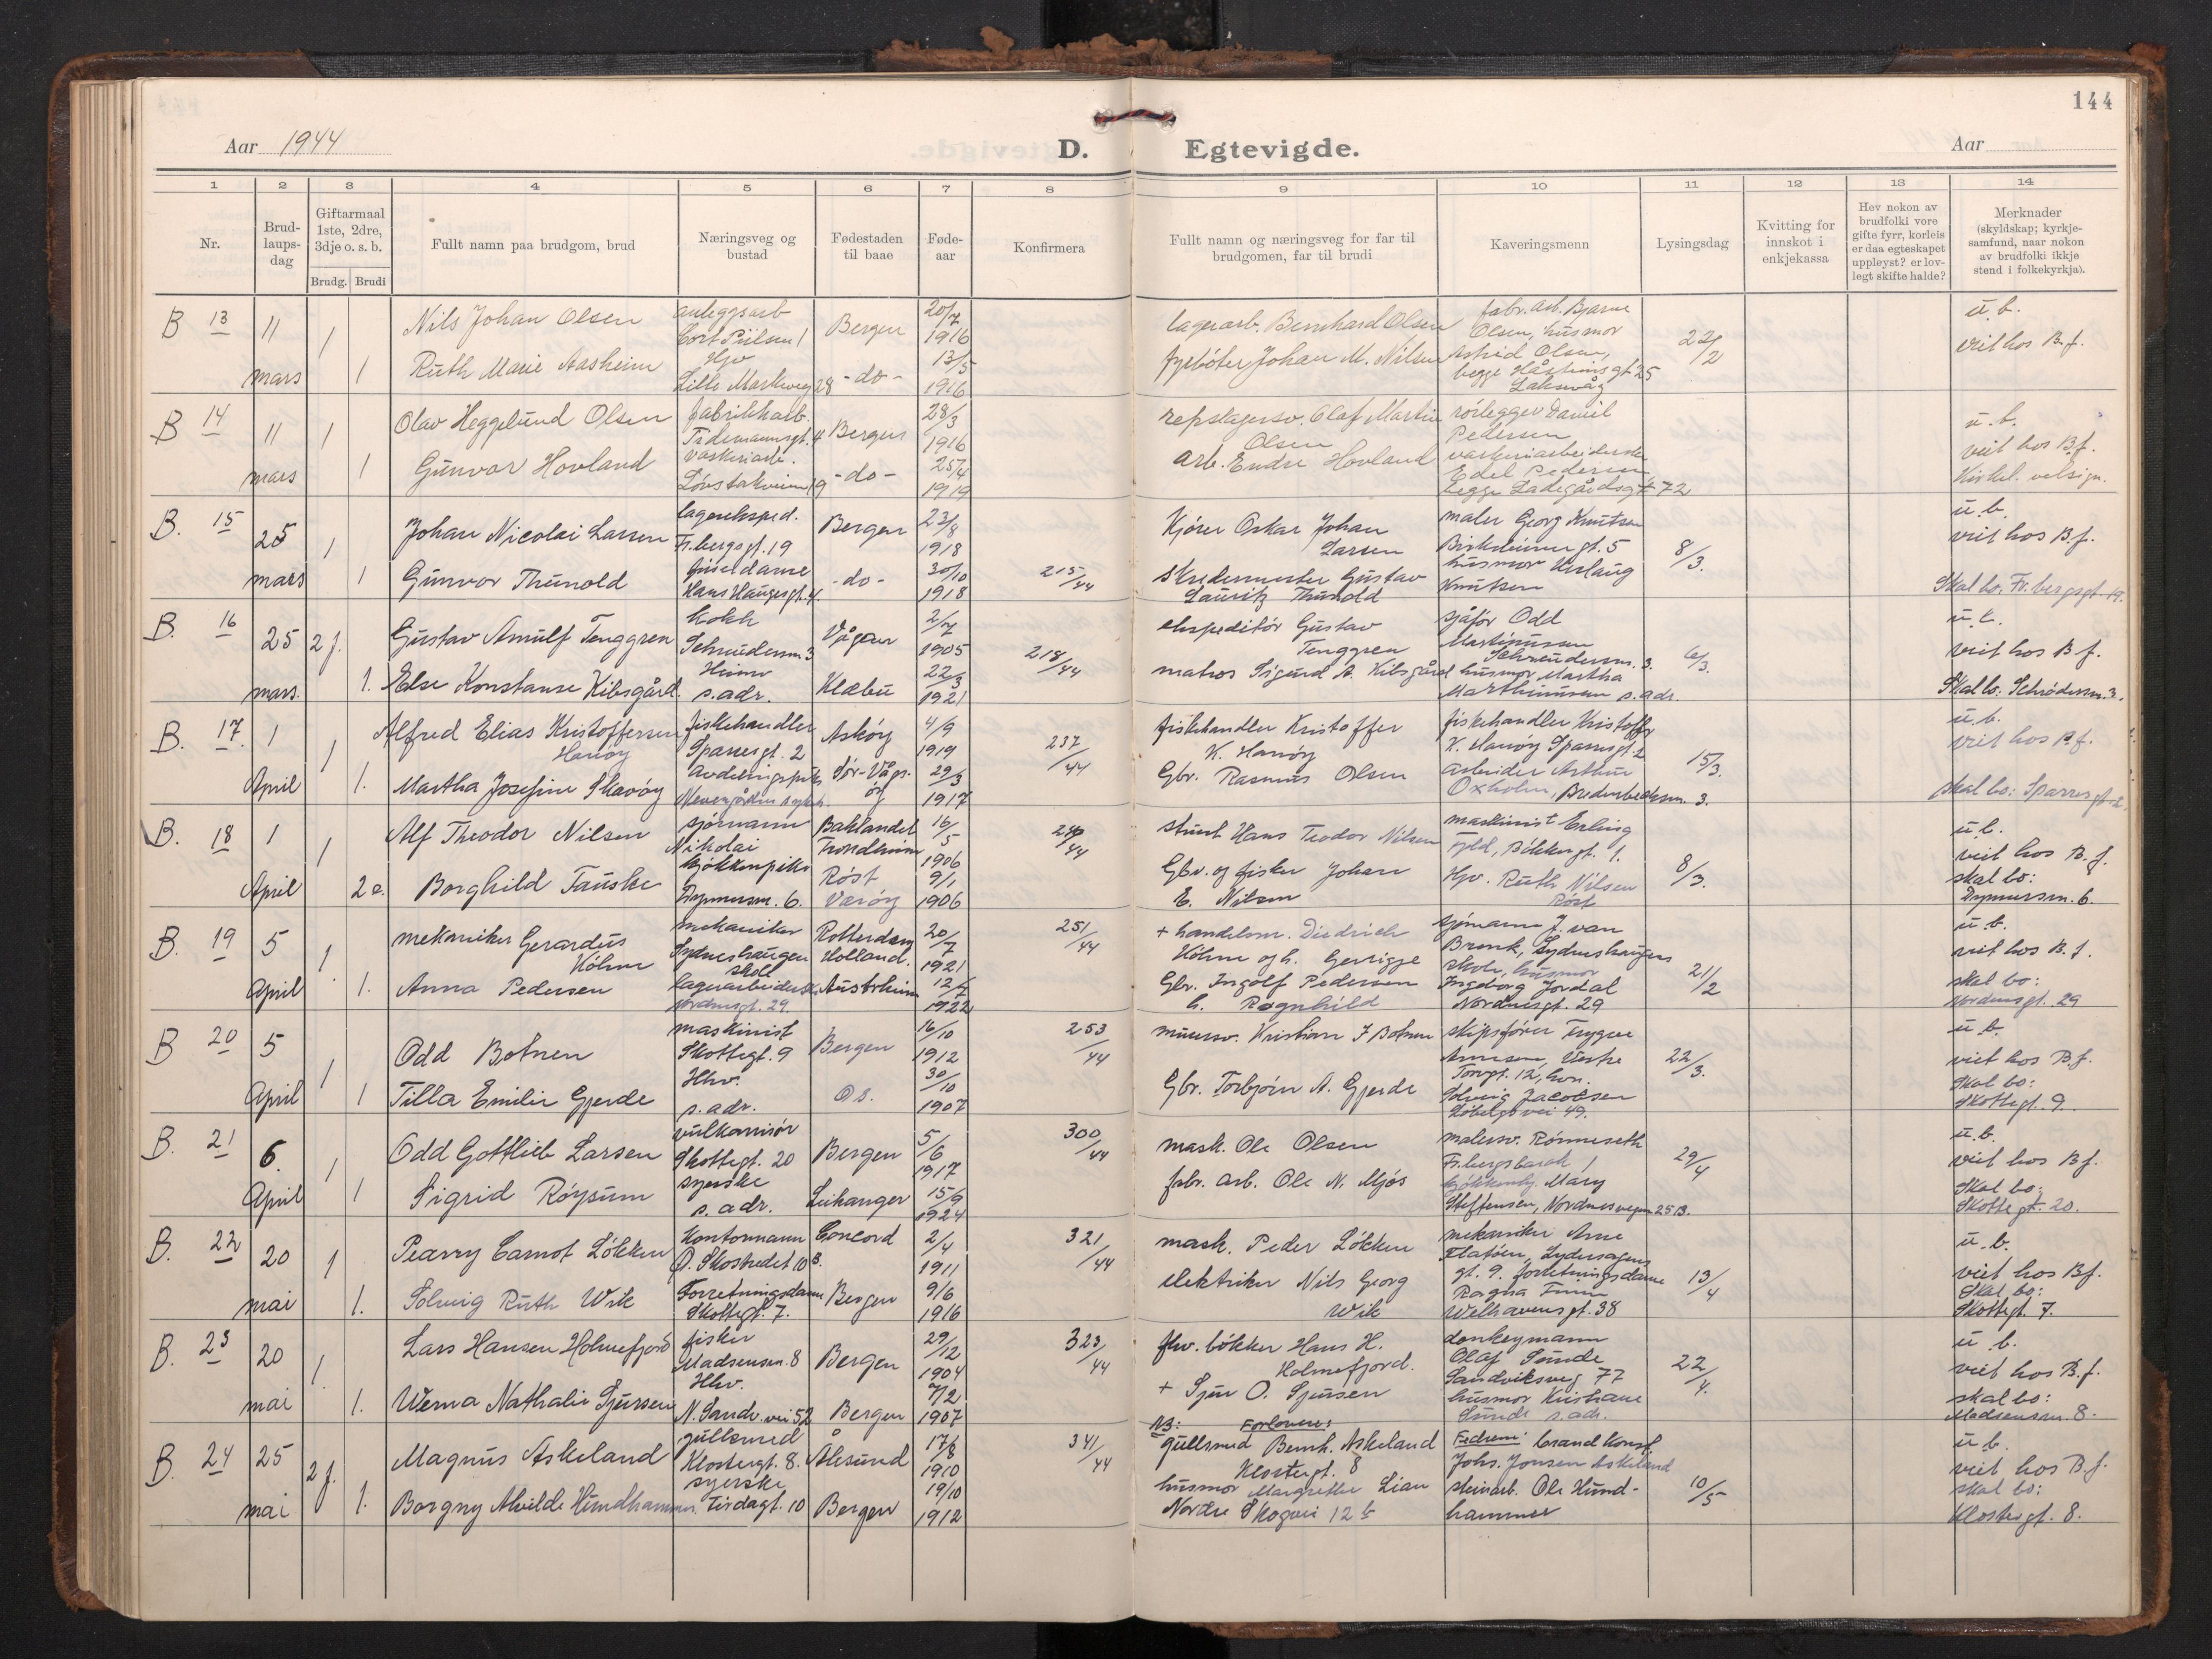 144
Aar 1944
D. Egtevigde.
Aar
1 2 3 4 5 6 7 8 9 10 11 12 13 14
Nr.
Brud-
laups-
dag
Giftarmaal
1ste, 2dre,
3dje o. s. b.
Brudg. Brudi
Fullt namn paa brudgom, brud
Næringsveg og
bustad
Fødestaden
til baae
Føde-
aar
Konfirmera
Fullt namn og næringsveg for far til
brudgomen, far til brudi
Kaveringsmenn
Lysingsdag
Kvitting for
innskot i
enkjekassa
Hev nokon av
brudfolki vore
gifte fyrr, korleis
er daa egteskapet
uppløyst? er lov-
legt skifte halde?
Merknader
(skyldskap; kyrkje-
samfund, naar nokon
av brudfolki ikkje
stend i folkekyrkja).
B 13 11 mars 1 1
Nils Johan Olsen
Ruth Marie Aasheim
anleggsarb
Cort Piilsen 1
Hjv
Lille Markeveg 28
Bergen
-do-
20/7
1916
13/5
1916
lagerarb. Bernhard Olsen
fyrbøter Johan M. Nilsen
fabr. arb. Bjarne
Olsen, husmor
Astrid Olsen,
begge Håsteinsgt 25
Laksevåg
22/2
u. b.
viet hos B.f.
B 14 11 mars 1 1
Olav Heggelund Olsen
Gunvor Hovland
fabrikkarb.
Tidemannsgt. 4
vaskeriarb.
Løvstakveien 19
Bergen
-do-
28/3
1916
25/4
1919
repslagersv. Olaf Martin
Olsen
arb. Endre Hovland
rørlegger Daniel
Pedersen
vaskeriarbeiderske
Edel Pedersen
begge Ladegårdsgt 72
u. b.
viet hos B.f.
Kirkel. velsign.
B. 15 25 mars 1 1
Johan Nicolai Larsen
Gunvor Thunold
lagereksped.
Fr.bergsgt. 19
friserdame
Hans Haugesgt. 4.
Bergen
-do-
23/8
1918
30/10
1918
215/44
Kjører Oskar Johan
Larsen
Skredermester Gustav
Lauritz Thunold
maler Georg Knutsen
Birkebeinergt. 5
husmor Aslaug
Knutsen
8/3.
u. b.
viet hos B.f.
Skal bo: Fr.bergsgt 19.
B. 16 25 mars. 2 f. 1.
Gustav Arnulf Tenggren
Else Konstanse Kibsgård.
kokk
Schrøudersm. 3
Heimv
s. adr.
Vågan
Klæbu
2/7
1905
22/3
1921
218/44
ekspeditør Gustav
Tenggren
matros Sigurd A. Kibsgård
sjåfør Odd
Martinussen
Schrøudersm. 3.
husmor Martha
Marthinussen s. adr.
6/3.
u. b.
viet hos B f.
Skal bo: Schrödersm. 3.
B. 17. 1 April 1 1.
Alfred Elias Kristoffersen
Hanøy
Martha Josefine Skarøy
fiskehandler
Sparresgt. 2
Avdelingspike
Nevengården sykeh.
Askøy
Sør-Vågs-
øy
4/9
1919
29/3
1917
237/44
fiskehandler Kristoffer
K. Hanøy
Gbr. Rasmus Olsen
fiskehandler Kristoffer
K. Hanøy Sparresgt. 2
Arbeider Arthur
Oxholm, Bredenbecksm. 3.
15/3.
u. b.
viet hos B.f.
skal bo: Sparresgt. 2
B. 18 1 April 1 2 e.
Alf Theodor Nilsen
Borghild Fauske
sjømann
Nikolai
kjøkkenpike
Dypmursm. 6.
Baklandet
Trondheim
Røst
Værøy
16/5
1906
9/1
1906
240/44
stuert Hans Teodor Nilsen
Gbr. og fisker Johan
E. Nilsen
maskinist Erling
Fyld, Bøkkergt. 1.
Hjv. Ruth Nilsen
Røst
8/3.
u. b.
viet hos B. f.
skal bo:
Dypmursm. 6.
B. 19 5 April 1 1.
mekaniker Gerardus
Köhne
Anna Pedersen
mekaniker
Sydneshaugen
skole
Lagerarbeiderske
Nordnesgt. 29.
Rotterdam
Holland.
Austrheim
20/7
1921
12/7
1922
251/44
+ handelsm. Diedrich
Köhne og h. Gerrigje
Gbr. Ingolf Pedersen
h. Ragnhild
sjømann J. van
Brenk, Sydneshaugen
skole, husmor
Ingeborg Jordal
Nordnesgt. 29
21/2
u. b.
viet hos B. f.
skal bo:
Nordnesgt. 29
B 20 5 April 1 1
Odd Botnen
Tilla Emilie Gjerde
maskinist
Skottegt. 9
Hhv.
s. adr.
Bergen
Os.
16/10
1912
30/10
1907
253/44
murersv. Kristian J Botnen
Gbr. Torbjørn A. Gjerde
skipsfører Trygve
Arnesen, Vestre
Torvgt. 12, hvn.
Solveig Jacobsen
Løbergsvei 49.
22/3.
u. b.
viet hos B.f.
Skal bo:
Skottegt. 9.
B. 21 6. April 1 1
Odd Gottlieb Larsen
Sigrid Røysum
vulkanisør
Skottegt. 20
syerske
s. adr.
Bergen
Leikanger
5/6
1917
15/9
1924
300/44
mask. Ole Olsen
fabr. arb. Ole N. Mjøs
malersv. Rønneseth
Fr.bergsbarak 1
kjøkkenbj. Mary
Steffensen, Nordnesvegen 25 B.
29/4
u. b.
viet hos B f.
Skal bo:
Skottegt. 20.
B. 22 20 mai 1 1.
Pearry Carnot Løkken
Solveig Ruth Wik
Kontormann
Ø. Skostredet 10 B.
Forretningsdame
Skottegt. 7.
Concord
Bergen
2/4
1911
9/6
1916
321/44
mask. Peder Løkken
elektriker Nils Georg
Wik
mekaniker Arne
Flatøen, Lydersagens
gt. 9. forretningsdame
Ragna
Welhavensgt. 38
13/4
u. b.
viet hos B f.
Skal bo:
Skottegt. 7.
B. 23 20 mai 1. 1.
Lars Hansen Holmefjord
Werna Nathalie Sjursen
fisker
Madsensm. 8
Hhv.
N. Sandv. vei 52
Bergen
Bergen
29/12
1904
7/2
1907
323/44
fhv. bøkker Hans H.
Holmefjord.
+ Sjur O. Sjursen
donkeymann
Olaf Sunde
Sandviksveg 77
husmor Kristiane
Sunde s. adr.
22/4.
u. b.
viet hos B. f.
skal bo:
Madsensm. 8.
B. 24 25 mai 2 f. 1.
Magnus Askeland
Borgny Alvilde Hundhammer.
gullsmed
Klostergt. 8.
syerske
Tirdagt. 10
Ålesund
Bergen
17/8
1910
19/10
1912
341/44
NB: Forlovere:
gullsmed Bernh. Askeland
Klostergt. 8
husmor Margrethe Lian
Nordre Skogvei 12 b
Fedrene: brandkonst.
Johs. Jonsen Askeland
steinarb. Ole Hund-
hammer
10/5
u b.
viet hos B f.
skal bo:
Klostergt. 8.